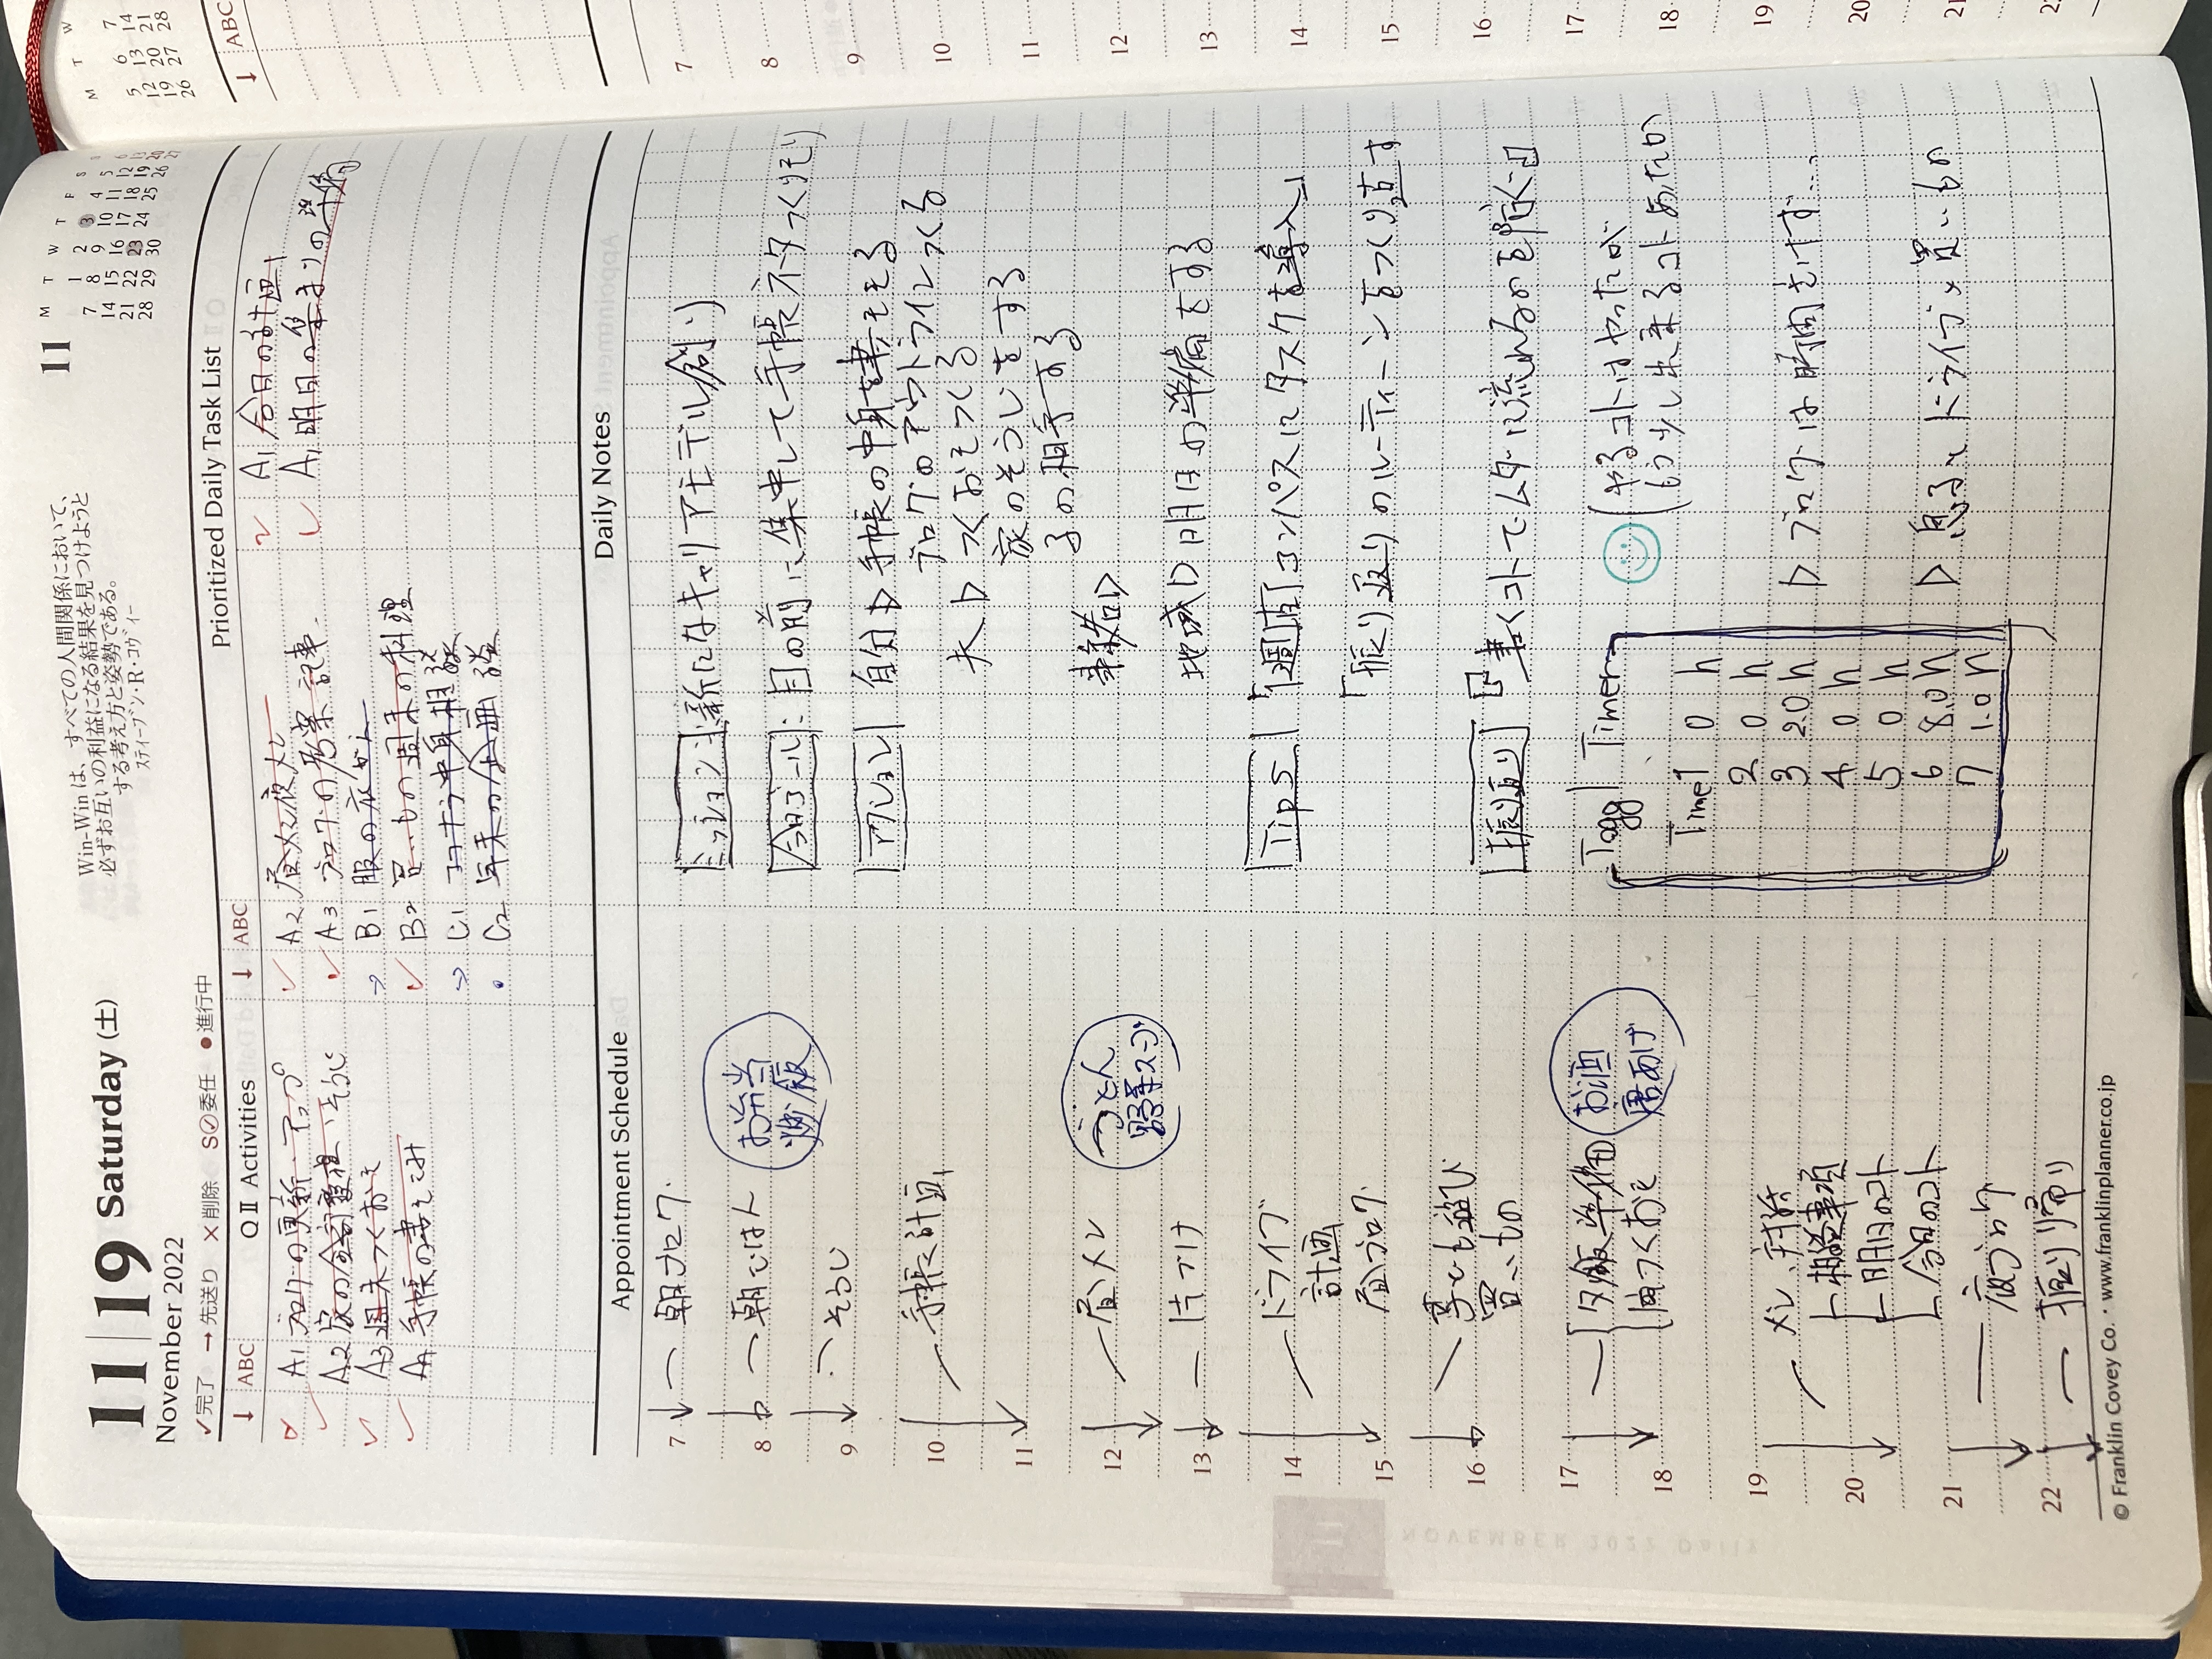 11|19 Saturday (土)
November 2022
✓完了 → 先送り × 削除 S⊘委任 ● 進行中
Win-Winは、すべての人間関係において、
必ずお互いの利益になる結果を見つけようと
する考え方と姿勢である。
スティーブン・R・コヴィー
11
M T W T F S S
1 2 3 4 5 6
7 8 9 10 11 12 13
14 15 16 17 18 19 20
21 22 23 24 25 26 27
28 29 30
↓ ABC Q II Activities
A1 ブログの更新.アップ
A2 家の全部整理、そうじ
A3 週末つくおき
A4 手帳の書きこみ
↓ ABC Prioritized Daily Task List
A2 昼メシ夜メシ
A3 ブログの形案 記事
B1 服の衣がえ
B2 買いもの週末の料理
C1 コーチング中身相談
C2 年末の企画 談
A1 今日の計画
A1 明日の集まりの準備
Appointment Schedule
7 朝ブログ
8 朝ごはん
お弁当
炒飯
9 そうじ
10 手帳計画
11
12 昼メシ
うどん
野菜スープ
13 片づけ
14 ドライブ
計画
15 昼ブログ
16 子ども遊び
買いもの
17 夕飯準備
18 週つくおき
お酒
唐あげ
19 メシ、
相談事項
20 明日のコト
今日のコト
21 夜ブログ
22 振り返り
Daily Notes
ミッション 新たなキャリアモデル創り
今日ゴール: 目の前に集中して手帳ネタづくり
アクション 自分▷手帳の中身を書きそる
ブログのアウトラインつくる
夫▷つくおきつくる
家のそうじをする
子の相手する
業務
地域▷明日の準備をする
Tips 「週直」コンパスにタスクを導入」
「振り返り」のルーティーンをつくり直す
振り返り 書くコトでムダに流れるのを防ぐ日
(やるコトはやったが
もう少し出来るコトあったか
Toggl Timer
Time1 0 h
2 0 h
3 2.0 h
4 0 h
5 0 h
6 8.0 h
7 1.0 h
▷ブログは時間さけず…
▷息子とドライブ×買いもの
© Franklin Covey Co. • www.franklinplanner.co.jp
M T W
5 6 7
12 13 14
19 20 21
26 27 28
↓ ABC
7
8
9
10
11
12
13
14
15
16
17
18
19
20
21
22